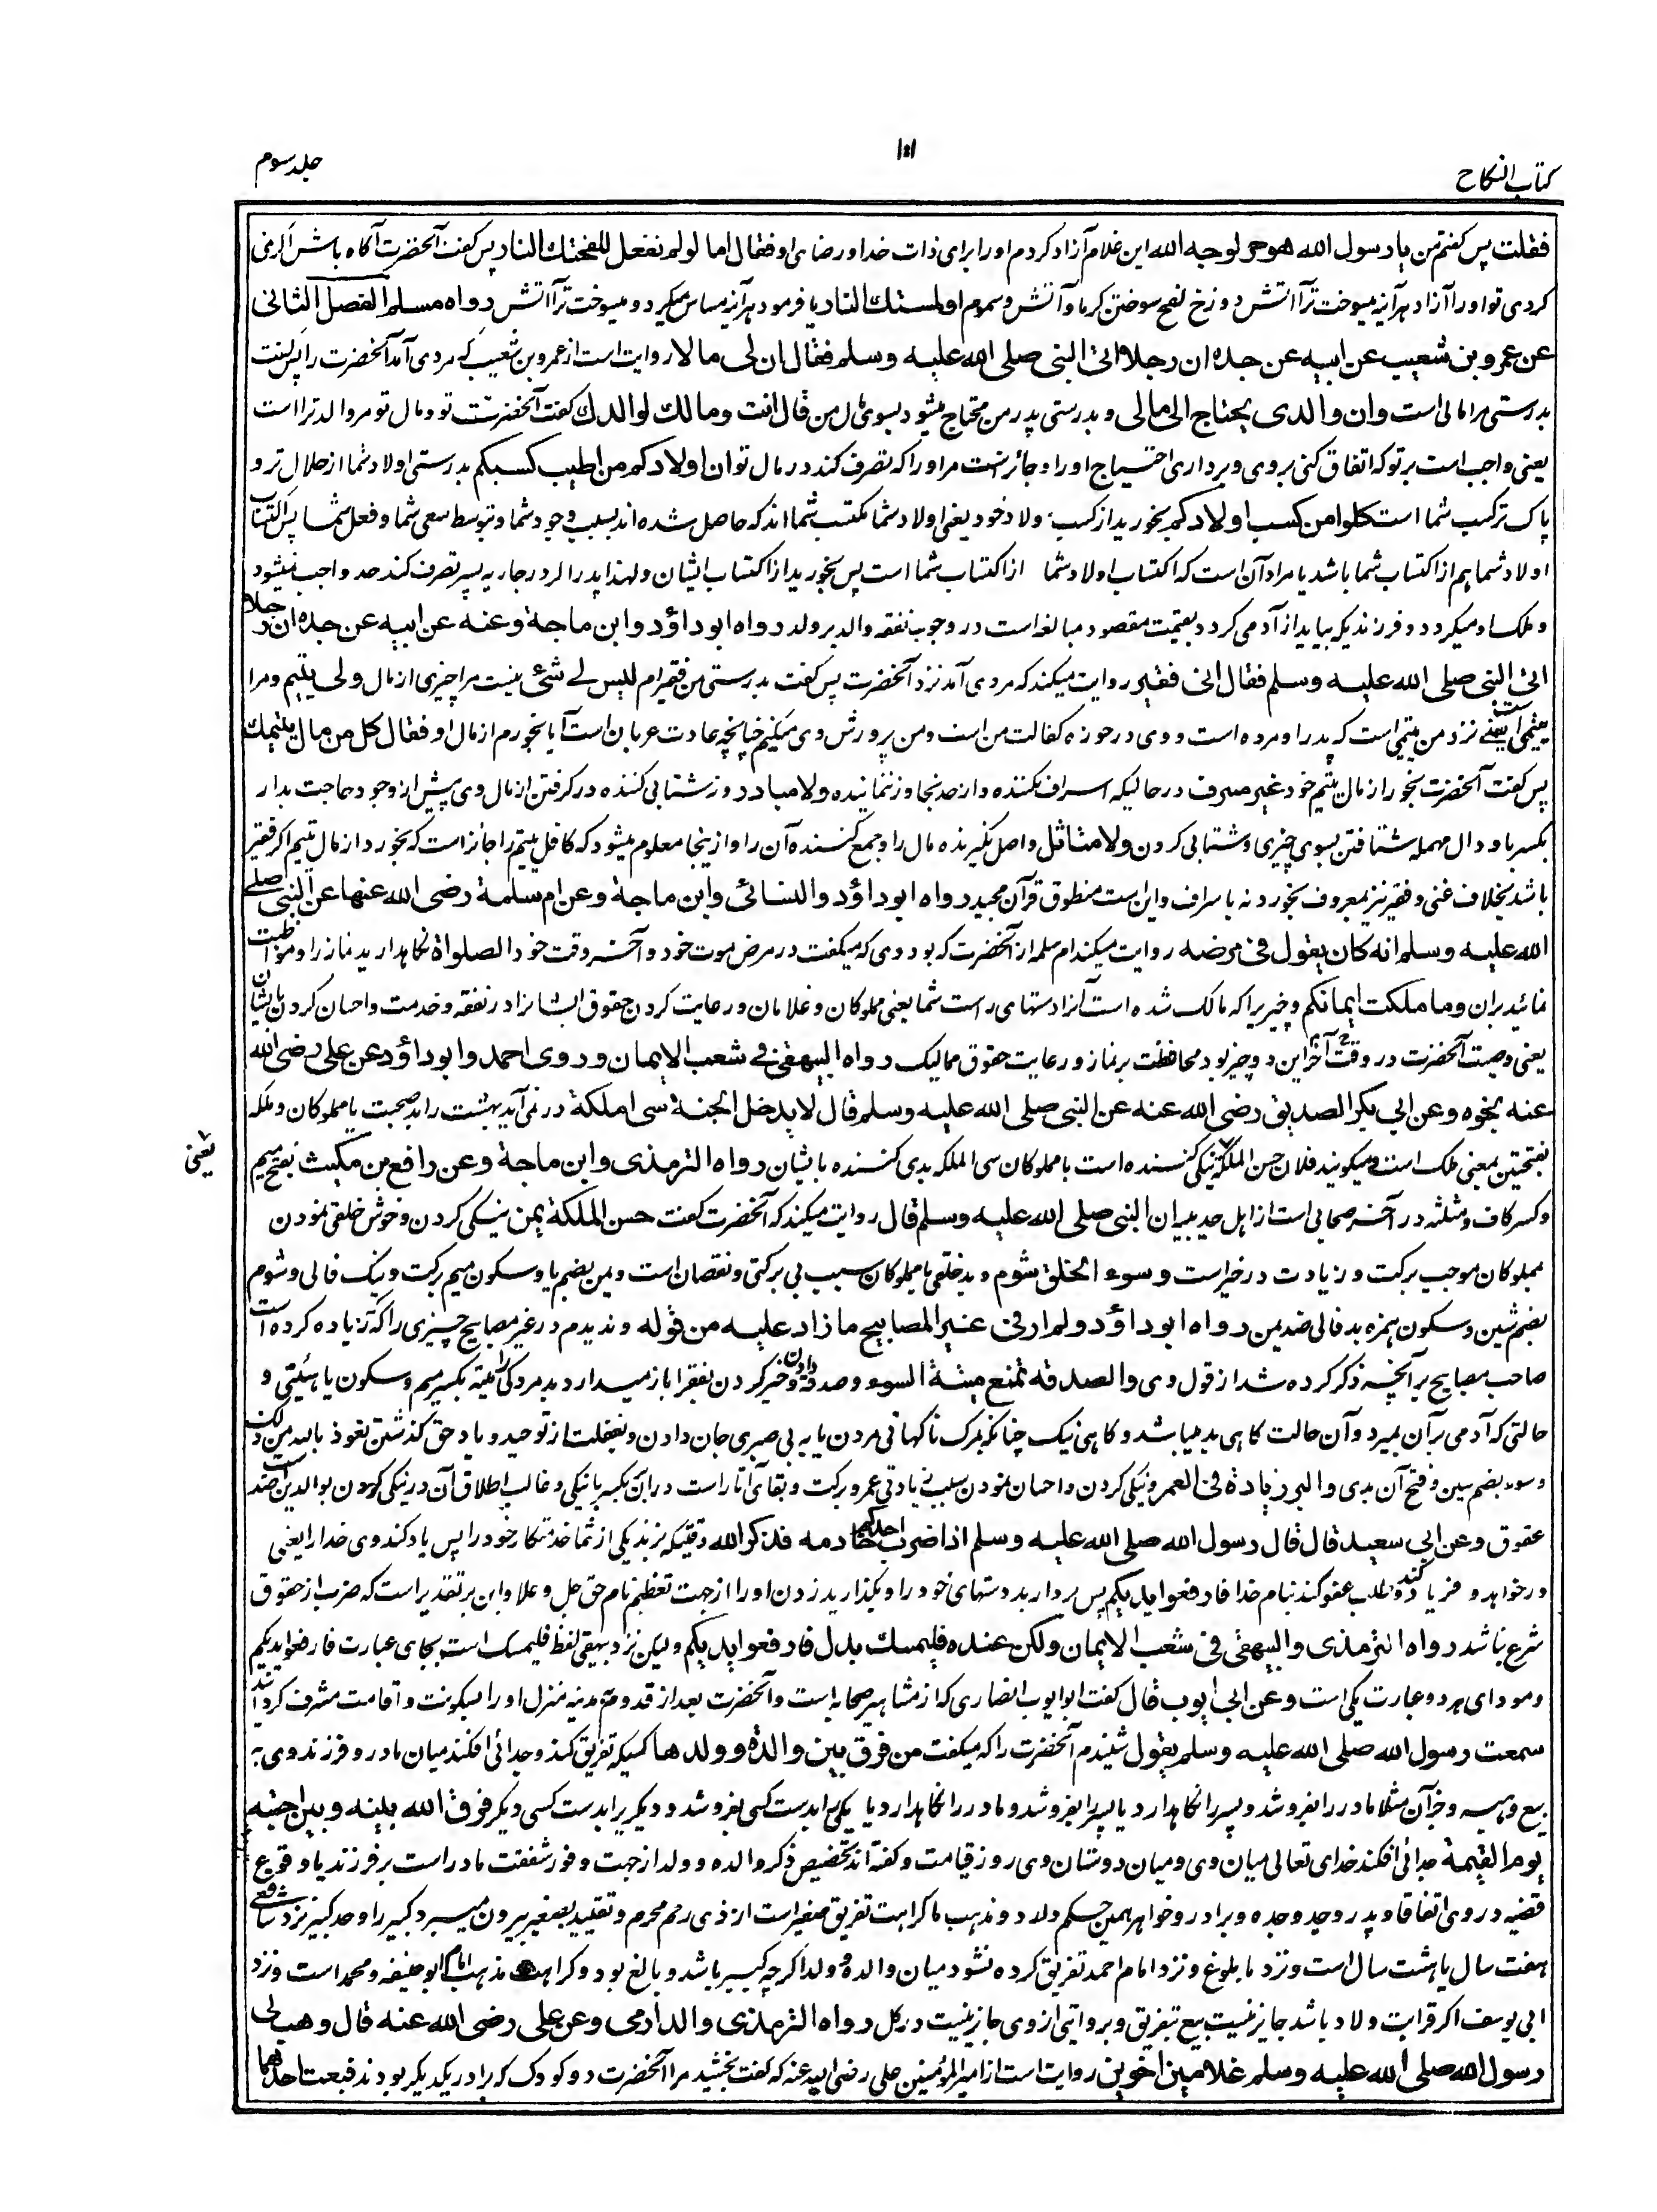 کتاب النکاح
۱۵۱
جلد سوم
فقلت پس گفتم من یا رسول الله هو حر لوجه الله این غلام آزاد کردم اورا برای ذات خدا و رضای او فقال اما لو لم تفعل للفحتك النار پس گفت آنحضرت آگاه باش اگر نمی
کردی تو اورا آزاد هر آینه میسوخت ترا آتش دوزخ لفح سوختن گرما و آتش و سموم او لمستك النار یا فرمود هر آینه مساس میکرد و میسوخت ترا آتش رواه مسلم الفصل الثانی
عن عمرو بن شعیب عن ابیه عن جده ان رجلا اتی النبی صلی الله علیه وسلم فقال ان لی مالا روایت است از عمرو بن شعیب که مردی آمد آنحضرت را پس گفت
بدرستی مرا مالی است وان والدی یحتاج الی مالی و بدرستی پدر من محتاج میشود بسوی مال من قال انت ومالك لوالدك گفت آنحضرت تو و مال تو مر والد ترا است
یعنی واجب است بر تو که انفاق کنی بروی و برداری احتیاج اورا و جائز است مر اورا که تصرف کند در مال تو ان اولادکم من اطیب کسبکم بدرستی اولاد شما از حلال تر و
پاک ترکسب شما است کلوا من کسب اولادکم بخورید از کسب اولاد خود یعنی اولاد شما مکتسب شما اند که حاصل شده اند بسبب وجود شما و بتوسط سعی شما و فعل شما پس اکتساب
اولاد شما هم از اکتساب شما باشد یا مراد آن است که اکتساب اولاد شما از اکتساب شما است پس بخورید از اکتساب ایشان و لهذا پدر را گر در جاریه پسر تصرف کند حد واجب نمیشود
و ملک او میگردد و فرزندیکه بیاید از آدمی گردد بقیمت مقصود مبالغه است در وجوب نفقه والد بر ولد رواه ابو داؤد وابن ماجة وعنه عن ابیه عن جده ان رجلا
اتی النبی صلی الله علیه وسلم فقال انی فقیر روایت میکند که مردی آمد نزد آنحضرت پس گفت بدرستی من فقیرام لیس لی شئ نیست مرا چیزی از مال ولی یتیم و مرا
یتیمی است یعنی نزد من یتیمی است که پدر او مرده است و وی در حوزه کفالت من است و من پرورش وی میکنم چنانچه عادت عربان است آیا بخورم از مال او فقال کل من مال یتیمك
پس گفت آنحضرت بخور از مال یتیم خود غیر مسرف در حالیکه اسراف نکننده و از حد تجاوز ننماینده ولا مبادر و نه شتابی کننده در گرفتن از مال وی پیش از وجود حاجت بدار
بکسر با و دال مهمله شتافتن بسوی چیزی و شتابی کردن ولا متاثل و اصل نگیرنده مال را و جمع کننده آن را و ازینجا معلوم میشود که کافل یتیم را جائز است که بخورد از مال یتیم اگر فقیر
باشد بخلاف غنی و فقیر نیز بمعروف بخورد نه باسراف و این است منطوق قرآن مجید رواه ابو داؤد والنسائی وابن ماجة وعن ام سلمة رضی الله عنها عن النبی صلی
الله علیه وسلم انه کان یقول فی مرضه روایت میکند ام سلمه از آنحضرت که بود وی که میگفت در مرض موت خود و آخر وقت خود الصلوة نگاهدارید نماز را و مواظبت
نمائید بران وما ملکت ایمانکم و چیزیرا که مالک شده است آنرا دستهای راست شما یعنی مملوکان و غلامان و رعایت کردن حقوق ایشانرا در نفقه و خدمت و احسان کردن بایشان
یعنی وصیت آنحضرت در وقت آخر این دو چیز بود محافظت بر نماز و رعایت حقوق ممالیک رواه البیهقی فی شعب الایمان وروی احمد وابو داؤد عن علی رضی الله
عنه نحوه وعن ابی بکر الصدیق رضی الله عنه عن النبی صلی الله علیه وسلم قال لا یدخل الجنة سی الملکة در نمی آید بهشت را بد صحبت با مملوکان و ملکه
بفتحتین بمعنی ملک است و میگویند فلان حسن الملکه نیکی کننده است با مملوکان سی الملکه بدی کننده بایشان رواه الترمذی وابن ماجة وعن رافع بن مکیث بفتح میم
یعنی
وکسر کاف و مثلثه در آخر صحابی است از اهل حدیبیه ان النبی صلی الله علیه وسلم قال روایت میکند که آنحضرت گفت حسن الملکة یمن نیکی کردن و خوش خلقی نمودن
بمملوکان موجب برکت و زیادت در خیر است وسوء الخلق شوم و بدخلقی با مملوکان سبب بی برکتی و نقصان است و یمن بضم یا و سکون میم برکت و نیک فالی و شوم
بضم شین و سکون همزه بدفالی ضد یمن رواه ابو داؤد ولم ار فی غیر المصابیح ما زاد علیه من قوله و ندیدم در غیر مصابیح چیزی را که زیاده کرده است
صاحب مصابیح بر آنچه ذکر کرده شد از قول وی والصدقة تمنع میتة السوء و صدقه دادن و خیر کردن بفقرا باز میدارد بد مردگی را میته بکسر میم و سکون یا هیئتی و
حالتی که آدمی بر آن بمیرد و آن حالت گاهی بد میباشد و گاهی نیک چنانکه مرگ ناگهانی مردن یا به بی صبری جان دادن و بغفلت از توحید و یاد حق گذشتن نعوذ بالله من ذلک
وسوء بضم سین و فتح آن بدی والبر زیادة فی العمر و نیکی کردن و احسان نمودن سبب زیادتی عمر و برکت و بقای آثار است در آن بر بکسر با نیکی و غالب اطلاق آن در نیکی کردن بوالدین است ضد
عقوق وعن ابی سعید قال قال رسول الله صلی الله علیه وسلم اذا ضرب احدکم خادمه فذکر الله وقتیکه بزند یکی از شما خدمتگار خود را پس یاد کند وی خدا را یعنی
درخواهد و فریاد کند و طلب عفو کند بنام خدا فارفعوا ایدیکم پس بردارید دستهای خود را و بگذارید زدن اورا از جهت تعظیم نام حق جل و علا و این بر تقدیر است که ضرب از حقوق
شرع نباشد رواه الترمذی والبیهقی فی شعب الایمان ولکن عنده فلیمسك بدل فارفعوا ایدیکم و لیکن نزد بیهقی لفظ فلیمسک است بجای عبارت فارفعوا ایدیکم
و مودای هر دو عبارت یکی است وعن ابی ایوب قال گفت ابو ایوب انصاری که از مشاهیر صحابه است و آنحضرت بعد از قدوم مدینه منزل اورا بسکونت و اقامت مشرف کرده اند
سمعت رسول الله صلی الله علیه وسلم یقول شنیدم آنحضرت را که میگفت من فرق بین والدة وولدها کسیکه تفریق کند و جدائی افکند میان مادر و فرزند وی به
بیع و هبه و جز آن مثلا مادر را بفروشد و پسر را نگاهدارد یا پسر را بفروشد و مادر را نگاهدارد یا یکی را بدست کسی بفروشد و دیگر یرا بدست کسی دیگر فرق الله بینه وبین احبته
یوم القیمة جدائی افکند خدای تعالی میان وی و میان دوستان وی روز قیامت و گفته اند تخصیص ذکر والده و ولد از جهت وفور شفقت مادر است بر فرزند یا وقوع
قضیه در وی اتفاقا و پدر و جد و جده و برادر و خواهر همین حکم دارد و مذهب ما کراهت تفریق صغیر است از ذی رحم محرم و تقیید بصغیر بیرون میبرد کبیر را و حد کبیر نزد شافعی
هفت سال یا هشت سال است و نزد ما بلوغ و نزد امام احمد تفریق کرده نشود میان والده و ولد اگرچه کبیر باشد و بالغ بود و کراهت مذهب امام ابو حنیفه و محمد است و نزد
ابی یوسف اگر قرابت ولاد باشد جایز نیست بیع بتفریق و بروایتی از وی جایز نیست در کل رواه الترمذی والدارمی وعن علی رضی الله عنه قال وهب لی
رسول الله صلی الله علیه وسلم غلامین اخوین روایت است از امیر المؤمنین علی رضی الله عنه که گفت بخشید مرا آنحضرت دو کودک که برادر یکدیگر بودند فبعت احدهما